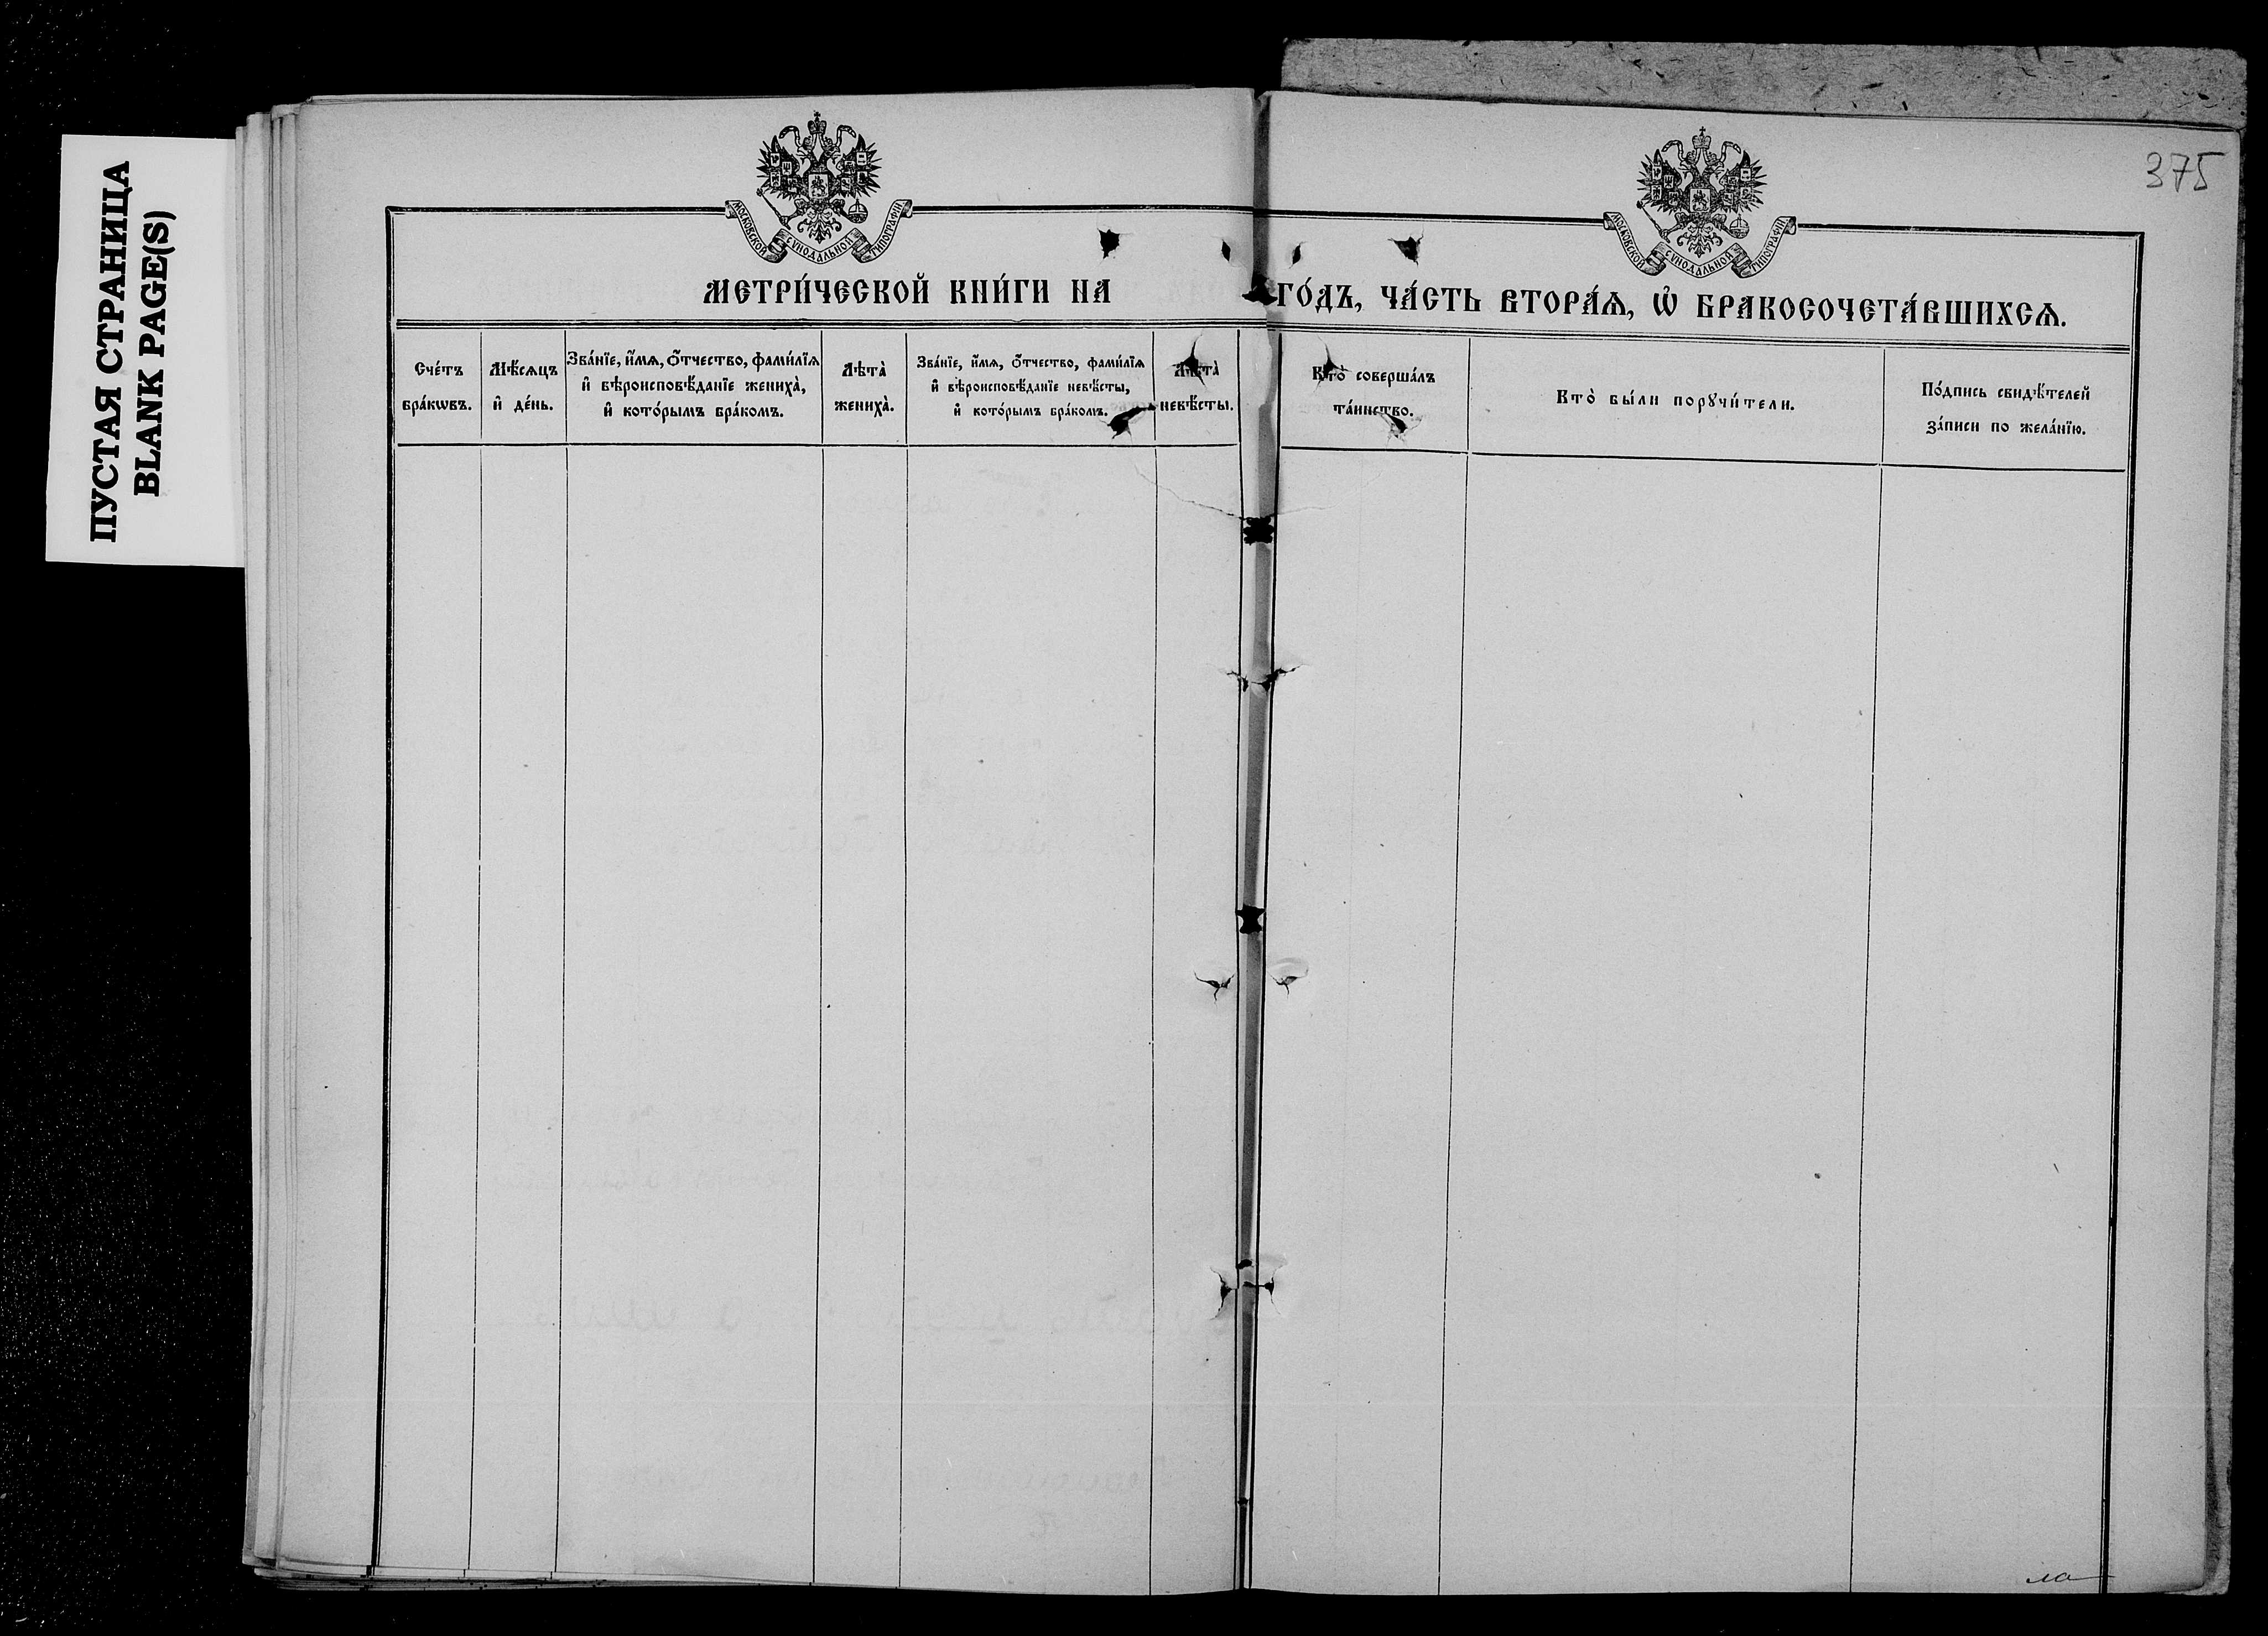 ПУСТАЯ СТРАНИЦА
BLANK PAGE(S)
375
МОСКОВСКОЙ СѴНОДАЛЬНОЙ ТИПОГРАФІИ
МОСКОВСКОЙ СѴНОДАЛЬНОЙ ТИПОГРАФІИ
МЕТРИ́ЧЕСКОЙ КНИ́ГИ НА ГО́ДЪ, ЧА́СТЬ ВТОРА́Ѧ, Ѽ БРАКОСОЧЕТА́ВШИХСѦ.
Сче́тъ
бра́кѡвъ.
Мѣ́сѧцъ
и҆ де́нь.
Зва́нїе, и҆́мѧ, ѻ҆́тчество, фами́лїѧ
и҆ вѣроисповѣ́данїе жениха̀,
и҆ кото́рымъ бра́комъ.
Лѣта̀
жениха̀.
Зва́нїе, и҆́мѧ, ѻ҆́тчество, фами́лїѧ
и҆ вѣроисповѣ́данїе невѣ́сты,
и҆ кото́рымъ бра́комъ.
Лѣта̀
невѣ́сты.
Кто̀ соверша́лъ
та́инство.
Кто̀ бы́ли порꙋчи́тели.
По́дпись свидѣ́телей
за́писи по жела́нїю.
ла